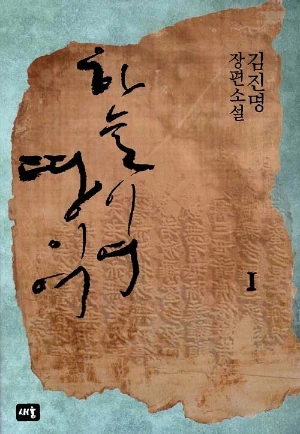 하늘이여
땅이여
김진명
장편소설
I
새움